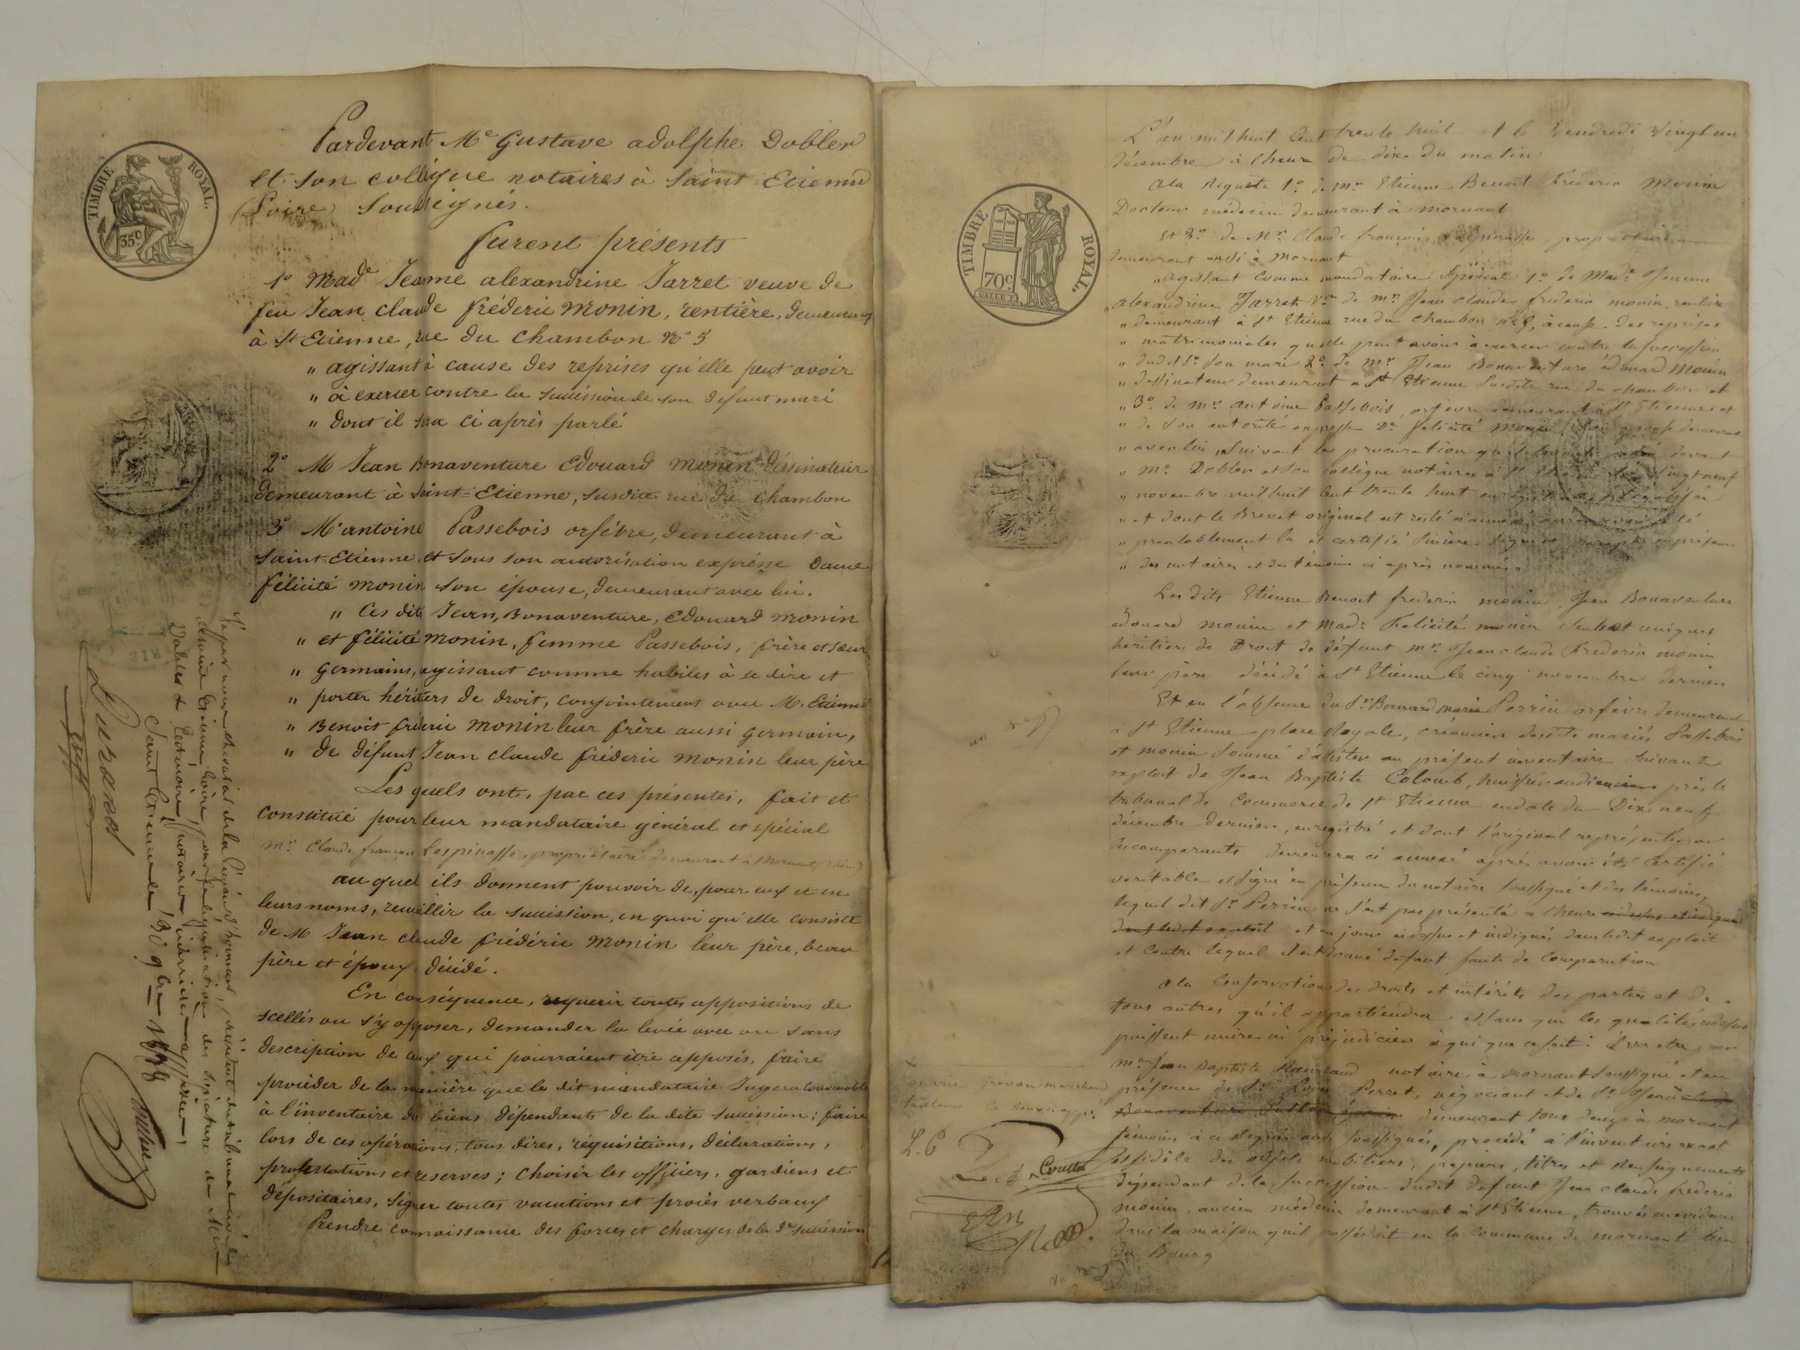 TIMBRE ROYAL.
35c
Pardevant Me Gustave adolphe Dobler
et son collègue notaires à Saint-Etienne
(Loire) Soussignés.
furent présents
1° Made Jeanne alexandrine Jarret veuve de
feu Jean claude fréderic Monin, rentière, demeurant
à St Etienne, rue du Chambon N° 5
" agissant à cause des reprises qu'elle peut avoir
" à exercer contre la succession de son défunt mari
" dont il sera ci après parlé
2° M Jean Bonaventure Edouard Monin déssinateur
demeurant à Saint-Etienne, susdite rue du Chambon
3° M antoine Passebois orfèvre, demeurant à
Saint-Etienne et sous son autorisation expresse Dame
félicité Monin son épouse, demeurant avec lui.
" Ces dits Jean, Bonaventure, Edouard Monin
" et félicité Monin, femme Passebois, frère et sœur
" germains, agissant comme habiles à se dire et
" porter héritiers de droit, conjointement avec M. Etienne
" Benoit fréderic Monin leur frère aussi germain,
" de défunt Jean claude fréderic Monin leur père
Les quels ont, par ces présentes, fait et
constitué pour leur mandataire général et spécial
Mr Claude françois Lespinasse, propriétaire demeurant a Mornant (rhône)
au quel ils donnent pouvoir de, pour eux et en
leurs noms, recueillir la succession, en quoi qu'elle consiste
de M Jean claude frédéric Monin leur père, beau
père et époux décédé.
En conséquence, requerir toutes appositions de
scellés ou s'y opposer, demander la levée avec ou sans
description de ceux qui pourraient être apposés, faire
procéder de la manière que le dit mandataire Jugera convenable
à l'inventaire des biens dépendants de la dite succession; faire
lors de ces opérations, tous dires, réquisitions, déclarations,
protestations et reserves; choisir les officiers, gardiens et
dépositaires, signer toutes vacations et procès verbaux
Prendre connaissance des forces et charges de la de succession
Durand
TIMBRE ROYAL.
70c
L'an mil huit Cent trente huit et le Vendredi Vingt un
décembre à l'heure de dix du matin
a la Requête 1° de Mr Etienne Benoit frederic Monin
Docteur médecin demeurant à Mornant
Et 2° de Mr Claude françois Lespinasse propriétaire
demeurant aussi à Mornant
" agissant Comme mandataire spécial 1° de Made Jeanne
" alexandrine Jarret Vve de Mr Jean Claude frederic monin, rentière
" demeurant à St Etienne rue du Chambon n° 5, à cause des reprises
" matrimoniales qu'elle peut avoir à exercer contre la succession
" dudit Sr son mari 2° de Mr Jean Bonaventure édouard Monin
" dessinateur demeurant a St Etienne susdite rue du chambon et
" 3° de Mr antoine Passebois, orfèvre demeurant à St Etienne et
" de son autorité expresse De félicité Monin
" avec lui, suivant la procuration
" Mr Dobler et son collègue notaires à St Etienne le vingt neuf
" novembre mil huit Cent trente huit enregistrée et légalisée
" et dont le Brevet original est resté ci annexé après avoir été
" préalablement lu et certifié Sincère
" des notaires et des témoins ci après nommés
Les dits Etienne Benoit frederic monin Jean Bonaventure
édouard monin et Made félicité monin seuls et uniques
héritiers de Droit de défunt Mr Jean claude frederic monin
leur père décédé à St Etienne le cinq novembre dernier
Et en l'absence du Sr Bernard marie Perrin orfèvre demeurant
a St Etienne place Royale, créancier desdits mariés Passebois
et monin sommé d'assister au présent inventaire suivant
exploit de Jean Baptiste Colomb, huissier audiencier près le
tribunal de Commerce de St Etienne en date du Dix neuf
décembre dernier, enregistré et dont l'original représenté par
les comparants demeurera ci annexé après avoir été Certifié
veritable et signé en présence du notaire soussigné et des témoins,
lequel dit Sr Perrin ne s'est pas présenté a l'heure
et au jour ci dessus et indiqués dans ledit exploit
et contre lequel il est donné défaut faute de Comparution
a la Conservation des droits et intérêts des parties et de
tous autres qu'il appartiendra et sans que les qualités
puissent nuire ni préjudicier à qui que ce soit:
Me Jean Baptiste notaire à Mornant soussigné et en
présence de Sr Louis Perret, négociant et de Sr Jean
demeurant tous deux à Mornant
témoins à ce Requis et soussignés, procédé à l'inventaire exact
et fidèle des objets mobiliers, papiers, titres et Renseignements
dépendant de la succession dudit defunt Jean claude frederic
monin, ancien médecin demeurant à St Etienne, trouvés en évidence
dans la maison qu'il possédait en la Commune de Mornant lieu
du Bourg
L. P